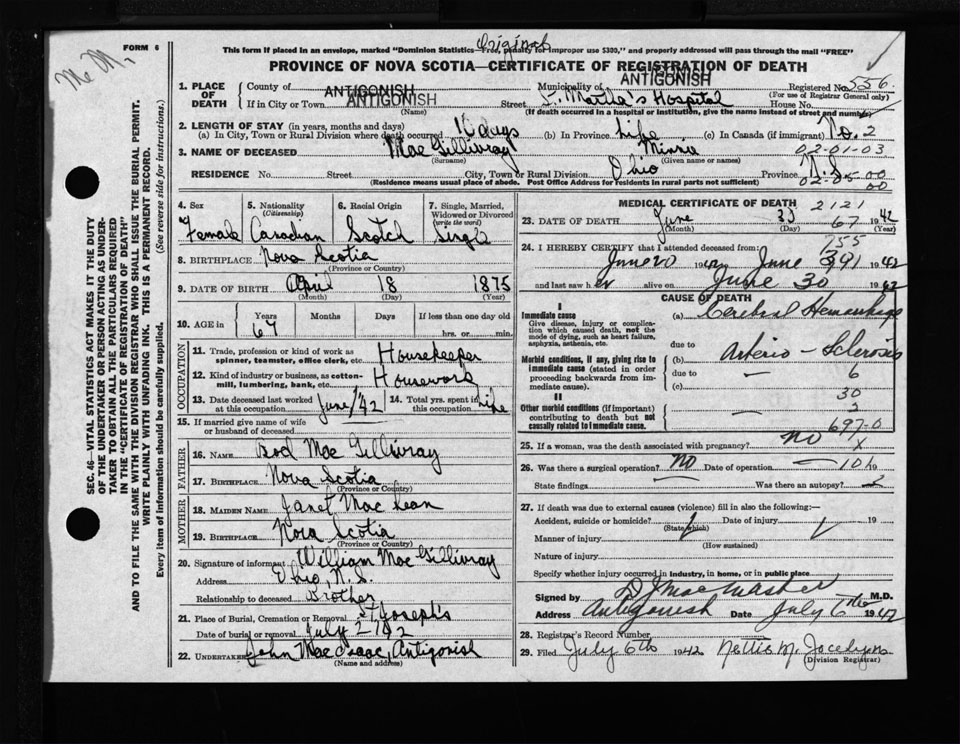 FORM 6
Original
This form if placed in an envelope, marked "Dominion Statistics—Free, penalty for improper use $300," and properly addressed will pass through the mail "FREE"
PROVINCE OF NOVA SCOTIA—CERTIFICATE OF REGISTRATION OF DEATH
1. PLACE OF DEATH
County of ANTIGONISH Municipality of ANTIGONISH Registered No. 556
(For use of Registrar General only)
If in City or Town ANTIGONISH Street St. Martha's Hospital House No.
(Name) (If death occurred in a hospital or institution, give the name instead of street and number)
2. LENGTH OF STAY (in years, months and days)
(a) In City, Town or Rural Division where death occurred 10 days (b) In Province Life (c) In Canada (if immigrant) No. 2
3. NAME OF DECEASED Mac Gillivray Minnie 02-01-03
(Surname) (Given name or names)
RESIDENCE No. Street City, Town or Rural Division Ohio Province N.S.
(Residence means usual place of abode. Post Office Address for residents in rural parts not sufficient)
02-05-00
00
4. Sex Female
5. Nationality (Citizenship) Canadian
6. Racial Origin Scotch
7. Single, Married, Widowed or Divorced (write the word) Single
8. BIRTHPLACE Nova Scotia
(Province or Country)
9. DATE OF BIRTH April 18 1875
(Month) (Day) (Year)
10. AGE in Years Months Days If less than one day old
67 hrs. or min.
OCCUPATION
11. Trade, profession or kind of work as spinner, teamster, office clerk, etc. Housekeeper
12. Kind of industry or business, as cotton-mill, lumbering, bank, etc. Housework
13. Date deceased last worked at this occupation June/42
14. Total yrs. spent in this occupation Life
15. If married give name of wife or husband of deceased
FATHER
16. NAME Rod Mac Gillivray
17. BIRTHPLACE Nova Scotia
(Province or Country)
MOTHER
18. MAIDEN NAME Janet Mac Lean
19. BIRTHPLACE Nova Scotia
(Province or Country)
20. Signature of informant William Mac Gillivray
Address Ohio, N.S.
Relationship to deceased Brother
21. Place of Burial, Cremation or Removal St. Joseph's
Date of burial or removal July 2/42
22. UNDERTAKER John Mac Isaac, Antigonish
(Name and address)
MEDICAL CERTIFICATE OF DEATH 2121
23. DATE OF DEATH June 30 67 1942
(Month) (Day) (Year)
24. I HEREBY CERTIFY that I attended deceased from: 155
June 20 1942 June 30 1942
and last saw her alive on June 30 1942
CAUSE OF DEATH
I
Immediate cause
Give disease, injury or complication which caused death, not the mode of dying, such as heart failure, asphyxia, asthenia, etc.
(a) Cerebral Hemorrhage
due to
Morbid conditions, if any, giving rise to immediate cause (stated in order proceeding backwards from immediate cause).
(b) Arterio-Sclerosis
due to 6
(c)
30
II
Other morbid conditions (if important) contributing to death but not causally related to immediate cause.
697-0
25. If a woman, was the death associated with pregnancy? no X
26. Was there a surgical operation? No Date of operation 19
State findings Was there an autopsy? 2
27. If death was due to external causes (violence) fill in also the following:—
Accident, suicide or homicide? Date of injury 19
(State which)
Manner of injury
(How sustained)
Nature of injury
Specify whether injury occurred in industry, in home, or in public place
Signed by M.D.
Address Antigonish Date July 6th 1942
28. Registrar's Record Number
29. Filed July 6th 1942 Nettie M. Jocelyn
(Division Registrar)
SEC. 46—VITAL STATISTICS ACT MAKES IT THE DUTY
OF THE UNDERTAKER OR PERSON ACTING AS UNDERTAKER TO OBTAIN ALL THE PARTICULARS REQUIRED
IN THE "CERTIFICATE OF REGISTRATION OF DEATH"
AND TO FILE THE SAME WITH THE DIVISION REGISTRAR WHO SHALL ISSUE THE BURIAL PERMIT.
WRITE PLAINLY WITH UNFADING INK. THIS IS A PERMANENT RECORD.
Every item of information should be carefully supplied. (See reverse side for instructions.)